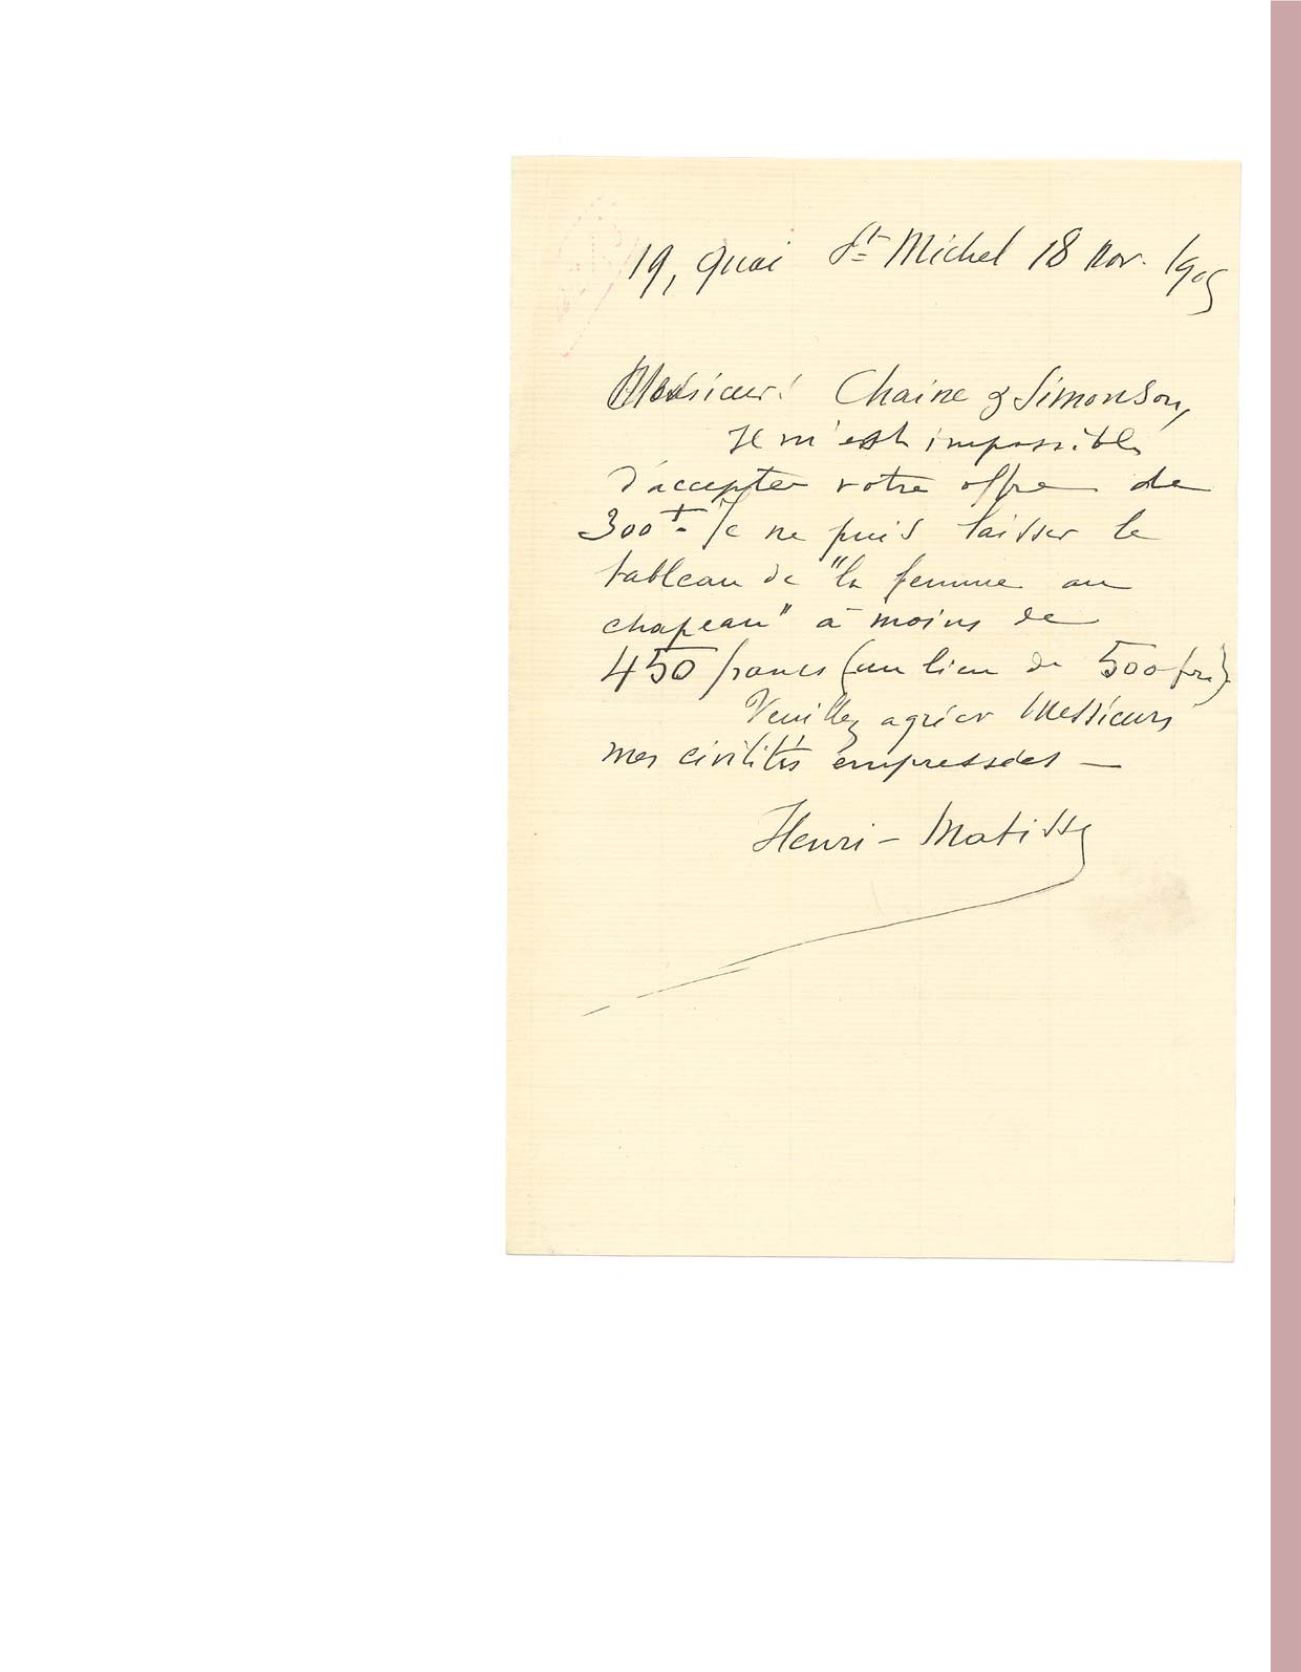 19, quai St Michel 18 Nov. 1905
Messieurs Chaine & Simonson,
Il m'est impossible
d'accepter votre offre de
300f. Je ne puis laisser le
tableau de "la femme au
chapeau" à moins de
450 francs (au lieu de 500 frs)
Veuillez agréer Messieurs
mes civilités empressées —
Henri-Matisse